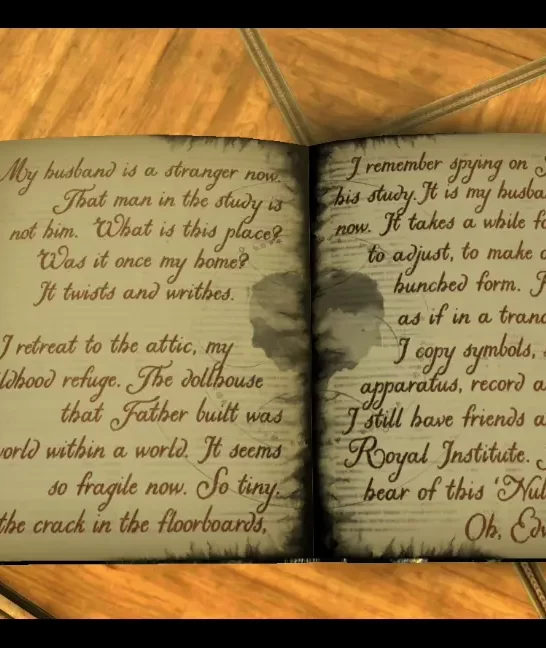 My husband is a stranger now.
That man in the study is
not him. What is this place?
Was it once my home?
It twists and writhes.
I retreat to the attic, my
ldhood refuge. The dollhouse
that Father built was
world within a world. It seems
so fragile now. So tiny.
the crack in the floorboards,
I remember spying on
his study. It is my husba
now. It takes a while fo
to adjust, to make o
hunched form.
as if in a tranc
I copy symbols,
apparatus, record a
I still have friends a
Royal Institute.
hear of this 'Nul
Oh, Edw